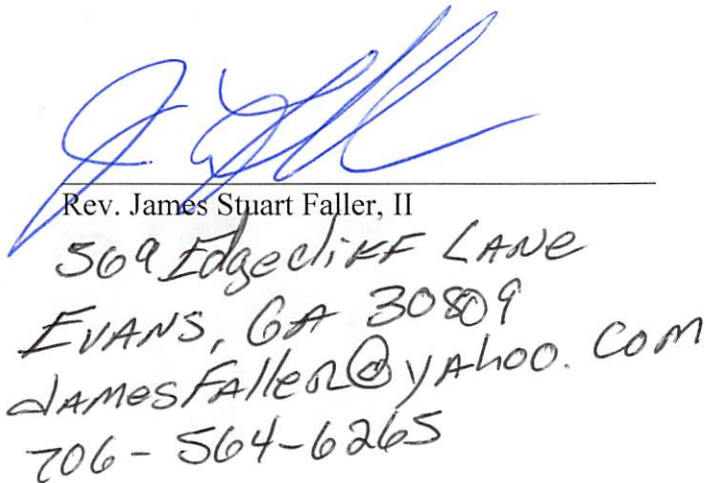 Rev. James Stuart Faller, II
569 Edgecliff Lane
Evans, GA 30809
JamesFaller@yahoo.com
706-564-6265